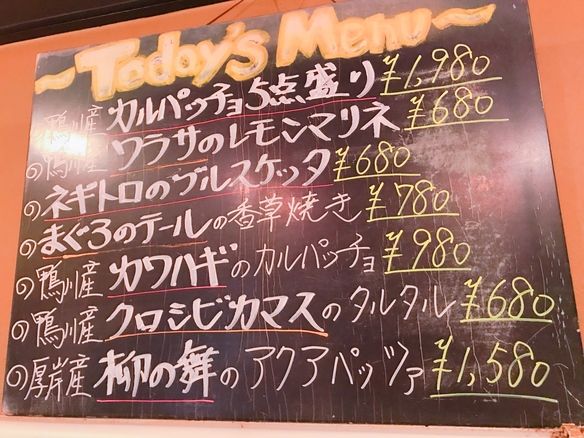 ~Today's Menu~
鴨川産 カルパッチョ5点盛り ¥1,980
鴨川産 ワラサのレモンマリネ ¥680
ネギトロのブルスケッタ ¥680
まぐろのテールの香草焼き ¥780
鴨川産 カワハギのカルパッチョ ¥980
鴨川産 クロシビカマスのタルタル ¥680
厚岸産 柳の舞のアクアパッツァ ¥1,580